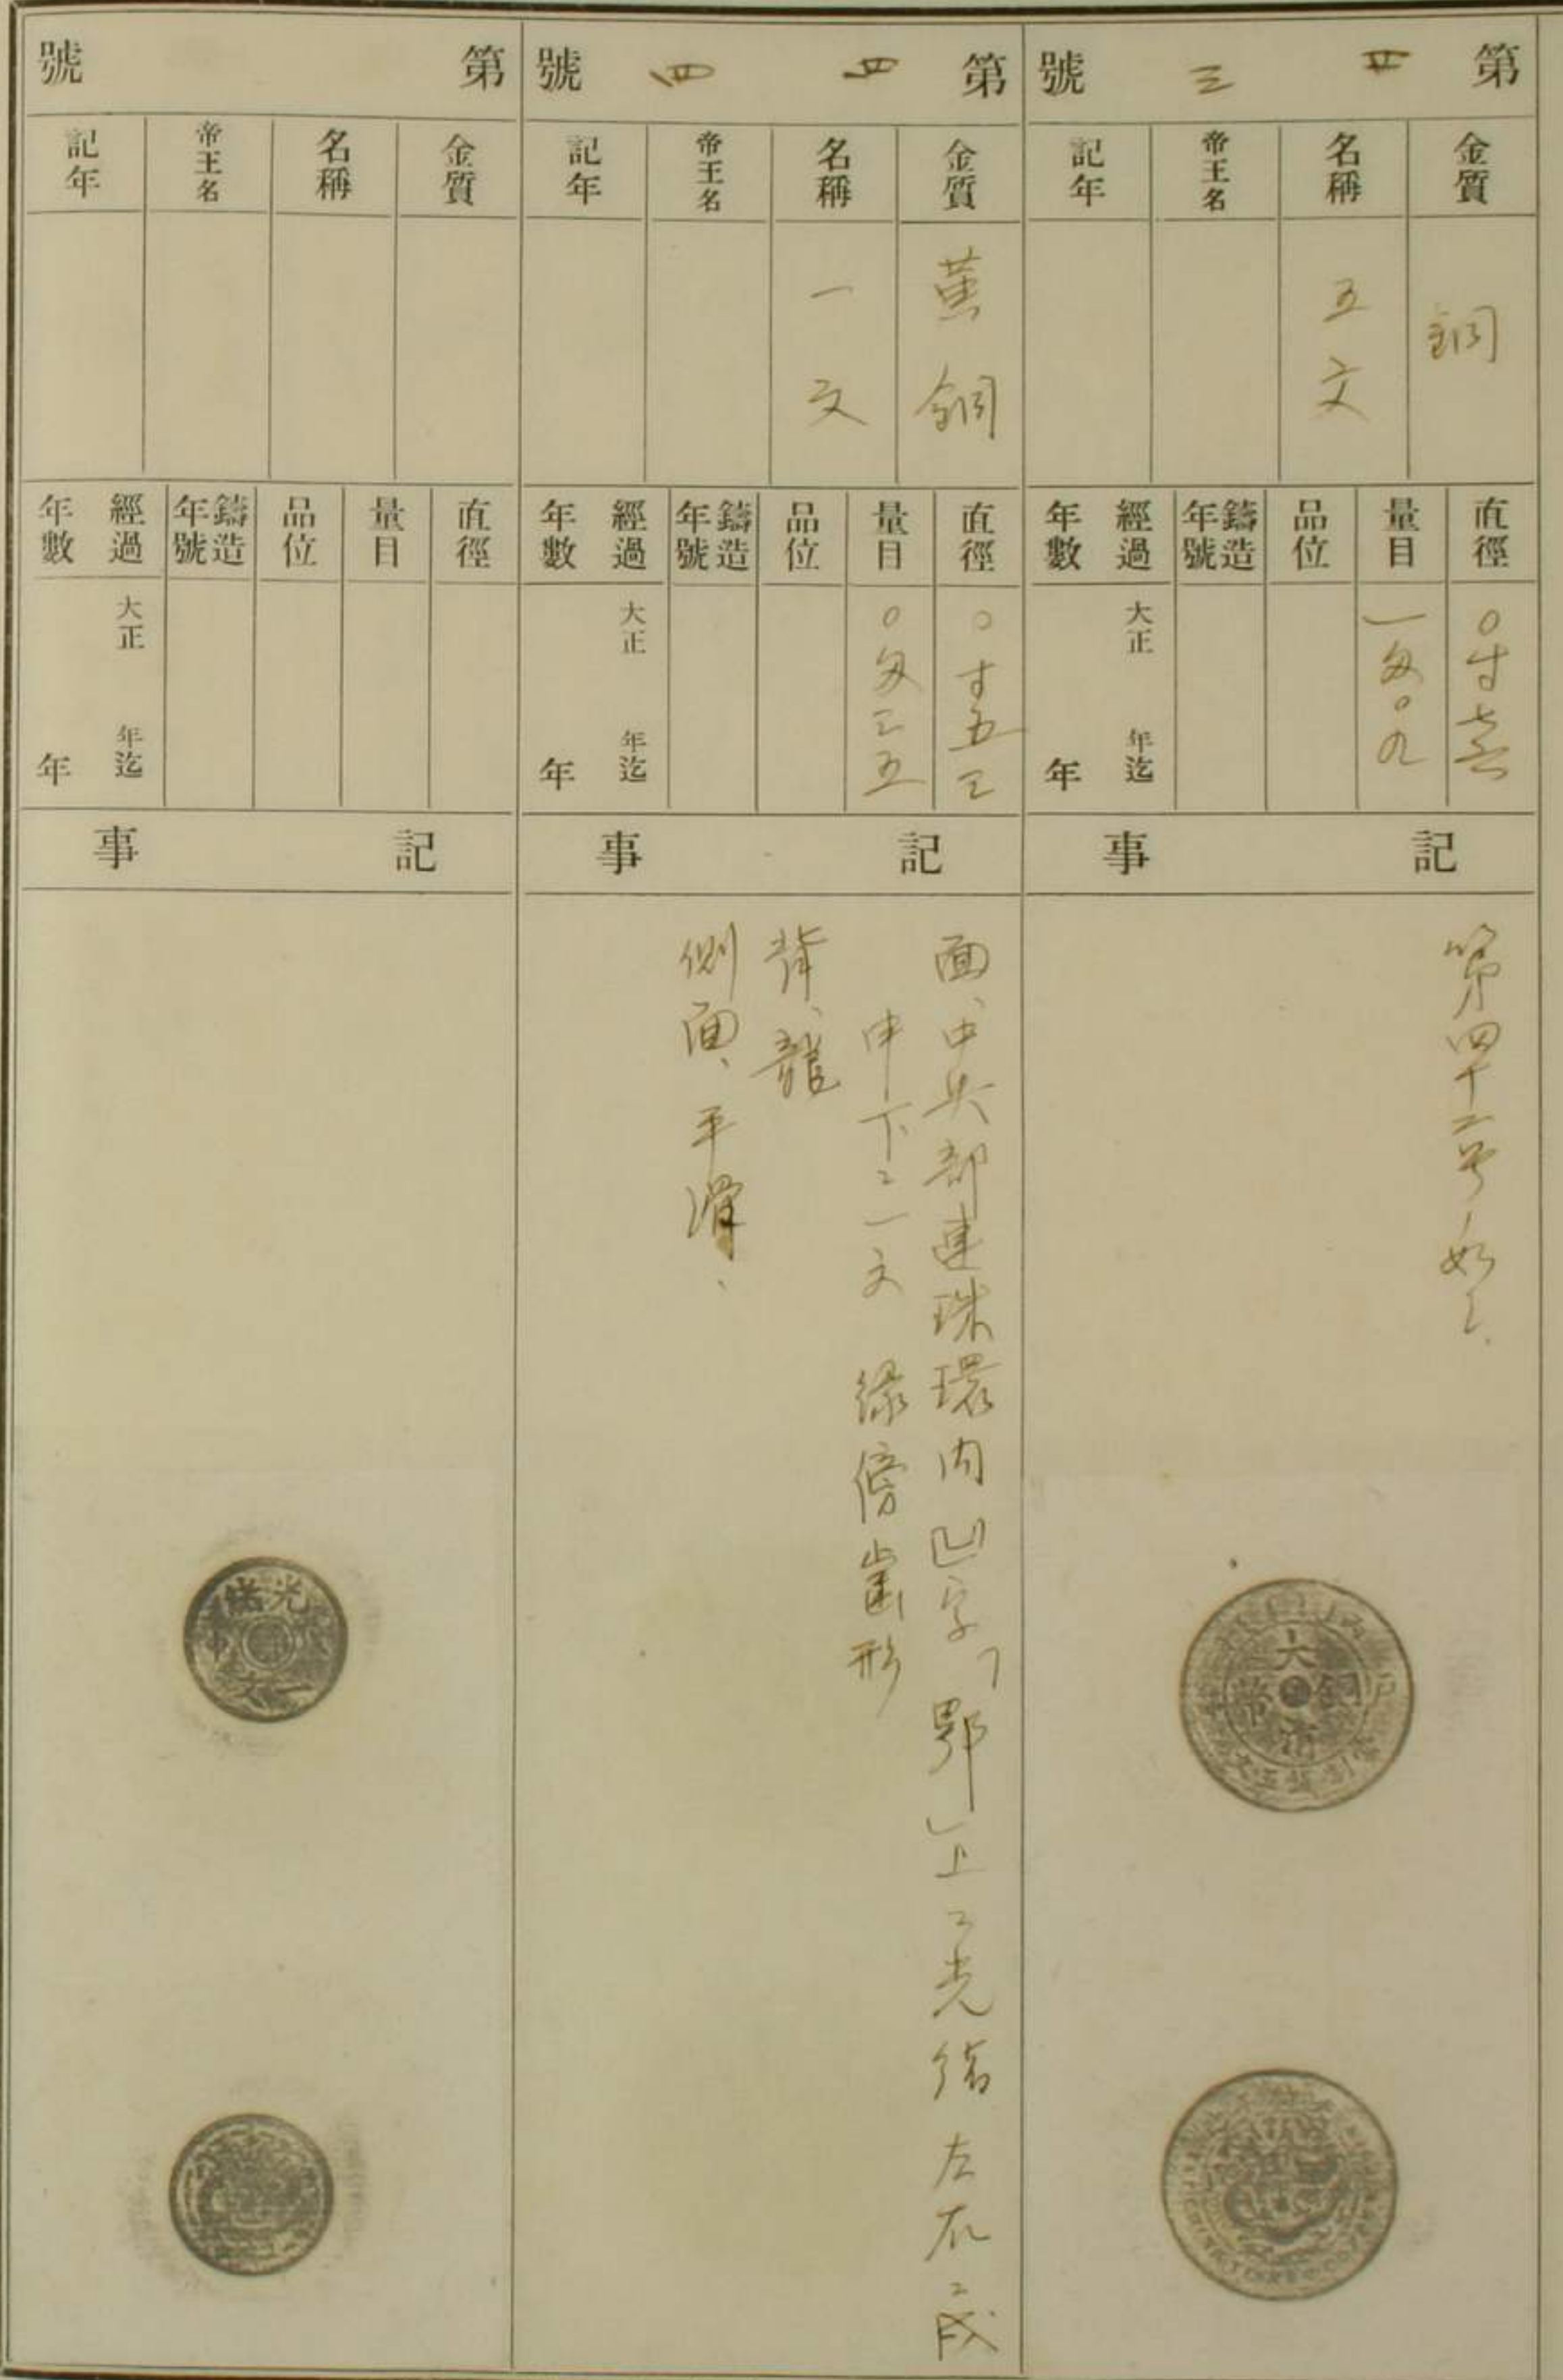 第 卌 三 號
金質
名稱
帝王名
記年
銅
五文
直徑
量目
品位
鑄造年號
經過年數
〇寸七六
一匁〇九
大正 年迄
年
記 事
第四十二号ノ如シ、
大清銅幣
第 卌 四 號
金質
名稱
帝王名
記年
黄銅
一文
直徑
量目
品位
鑄造年號
經過年數
〇寸五三
〇匁三五
大正 年迄
年
記 事
面、中央部連珠環内凹字「鄂」上ニ光緒 左右ニ戊
申下ニ一文 縁傍歯形
背、龍
側面、平滑、
第 號
金質
名稱
帝王名
記年
直徑
量目
品位
鑄造年號
經過年數
大正 年迄
年
記 事
光緒
一文